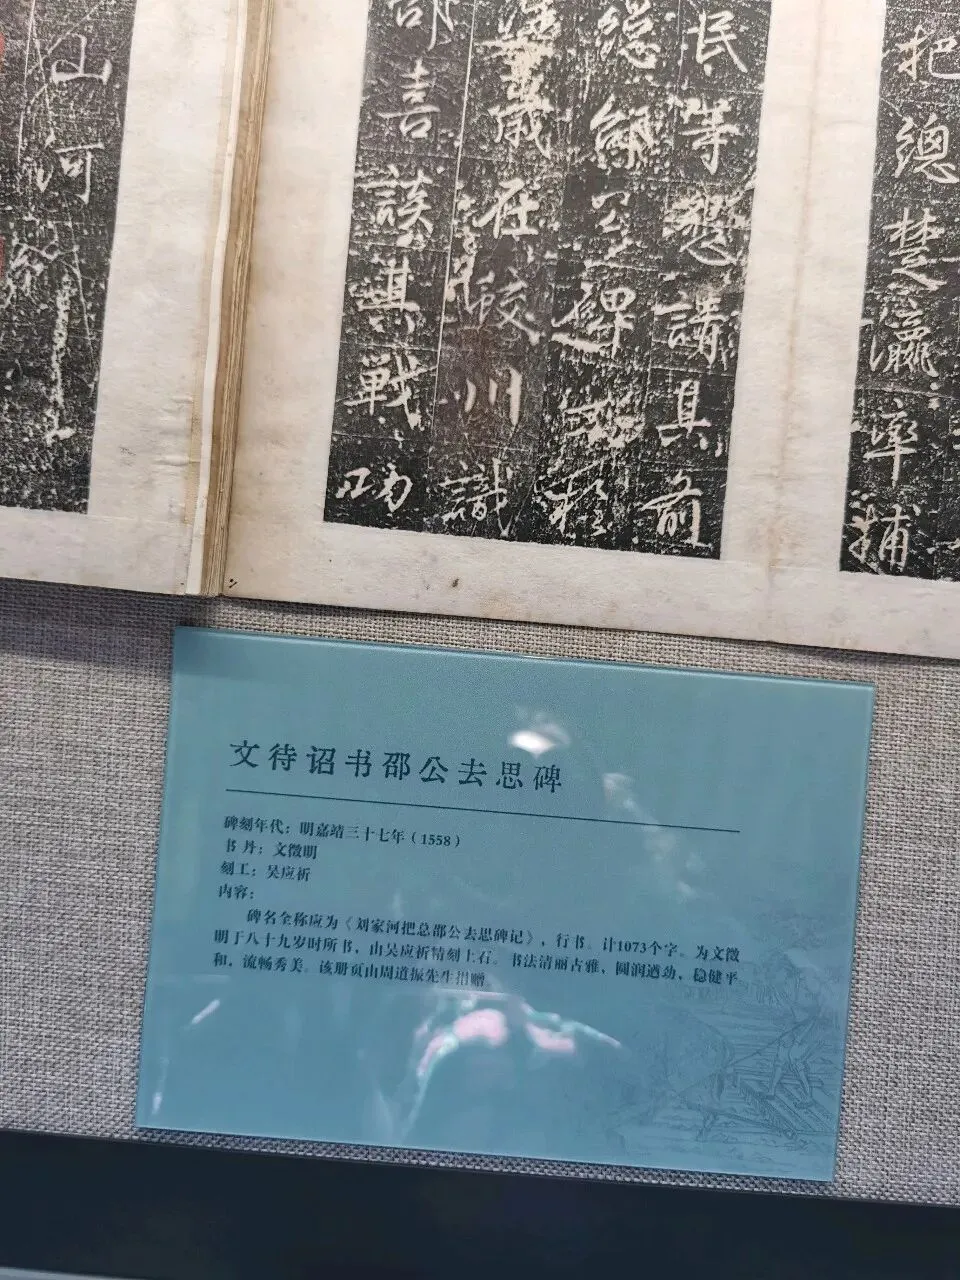 把總楚瀛率輔
民等懇請具前
總
在 州識
喜談其戰功
山河
文待诏书邵公去思碑
碑刻年代：明嘉靖三十七年（1558）
书 丹：文徵明
刻工：吴应祈
内容：
碑名全称应为《刘家河把总邵公去思碑记》，行书。计1073个字。为文徵
明于八十九岁时所书，由吴应祈精刻上石。书法清丽古雅，圆润遒劲，稳健平
和，流畅秀美。该册页由周道振先生捐赠